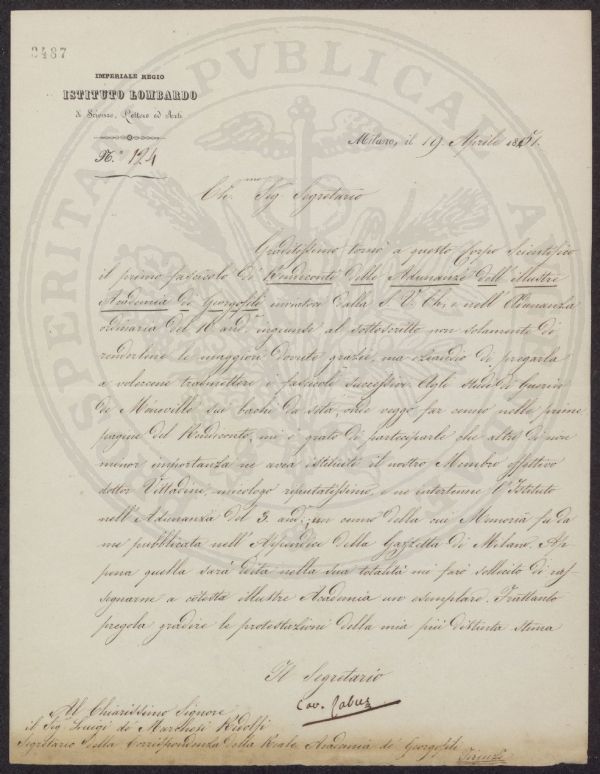 2487
IMPERIALE REGIO
ISTITUTO LOMBARDO
di Scienze, Lettere ed Arti
N.° 124
Milano, il 19 Aprile 1851.
Ch.mo Sig. Segretario
Graditissimo tornò a questo Corpo Scientifico
il primo fascicolo di Rendiconto delle Adunanze dell'illustre
Accademia dei Georgofili inviatoci dalla S. V. Ch. e nell'Adunanza
ordinaria del 16 and.te ingiunse al sottoscritto non solamente di
renderlene le maggiori dovute grazie, ma eziandio di pregarla
a volercene trasmettere i fascicoli successivi. Agli studi di Guerin
de Maneville sui bachi da seta, onde veggo far cenno nelle prime
pagine del Rendiconto, mi è grato di parteciparle che altri di non
minor importanza ne avea istituiti il nostro Membro effettivo
dottor Vittadini, micologo riputatissimo, e ne intertenne l'Istituto
nell'Adunanza del 3. and.te; un cenno della cui Memoria fu da
me pubblicata nell'Appendice della Gazzetta di Milano. Ap
pena quella sarà edita nella sua totalità mi farò sollecito di ras-
segnarne a cotesta illustre Accademia un esemplare. Frattanto
pregola gradire le protestazioni della mia più distinta stima
Il Segretario
Cav.
Al Chiarissimo Signore
il Sig. Luigi de' Marchesi Ridolfi
Segretario della Corrispondenza della Reale Accademia de' Georgofili
Firenze
PROSPERITATI PUBLICAE AUGENDAE